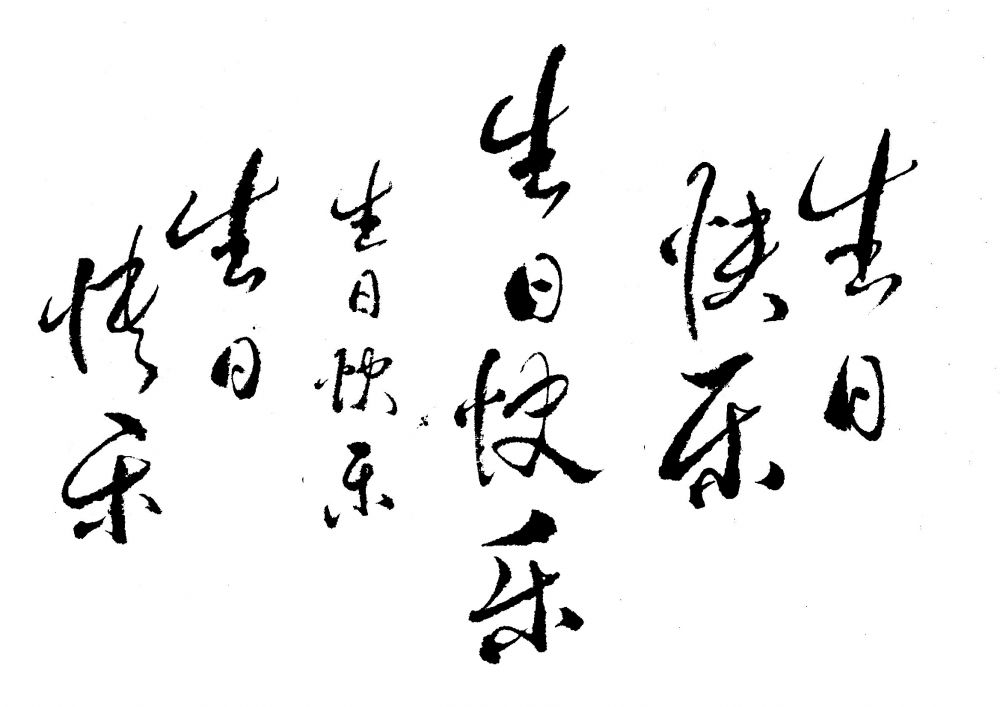 生日
快乐
生日快乐
生日快乐
生日
快乐